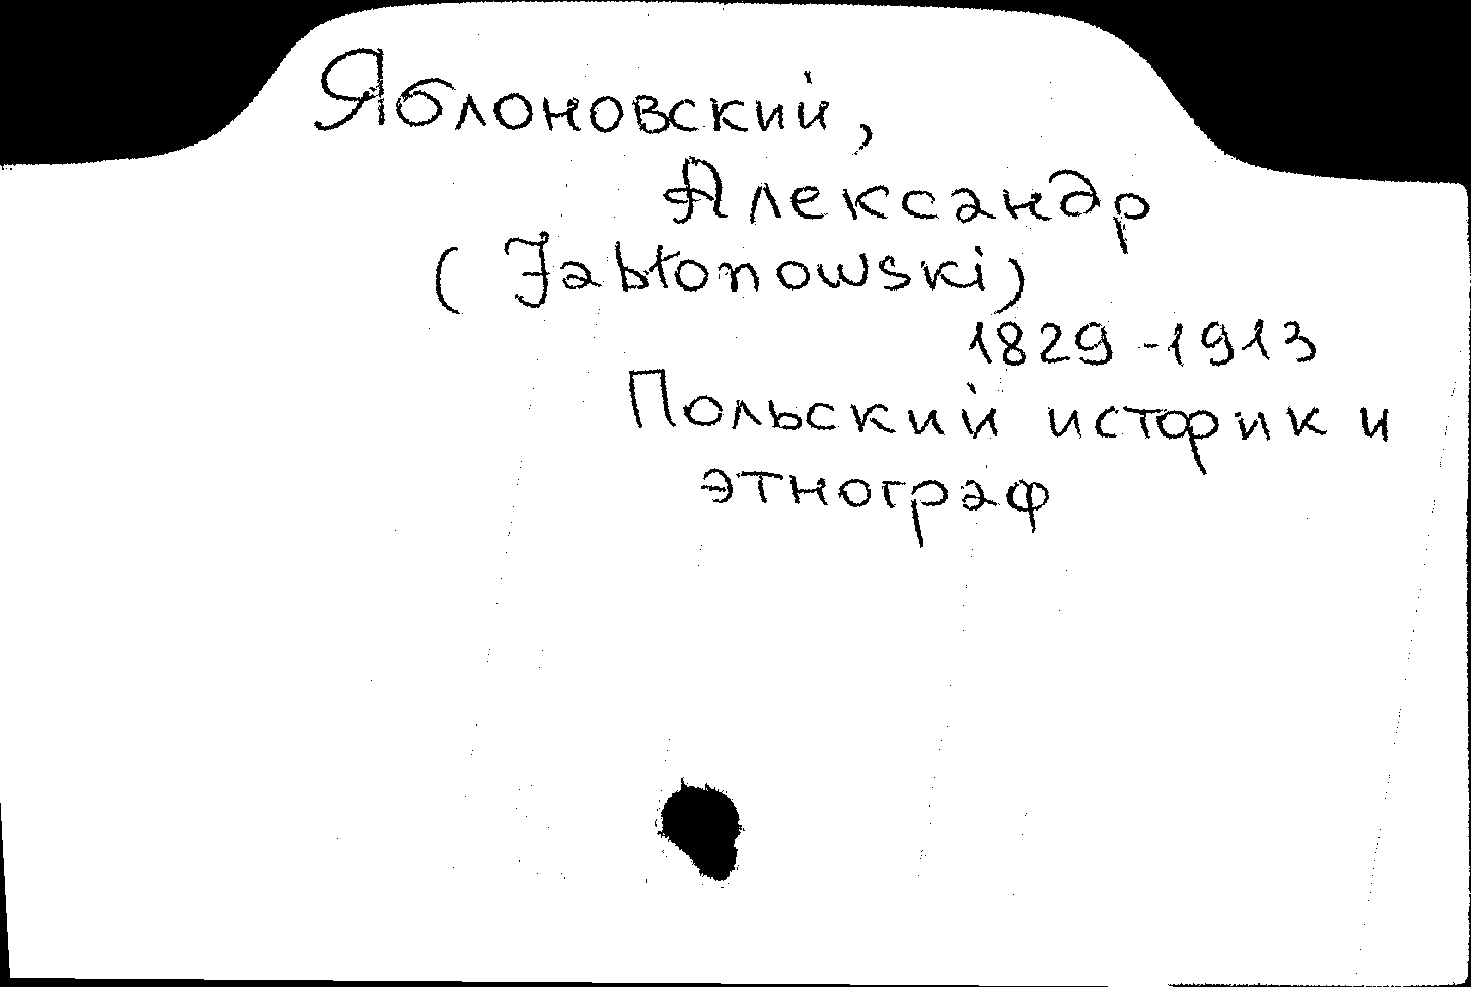 Яблоновский,
Александр
(Jabłonowski)
1829-1913
Польский историк и
этнограф